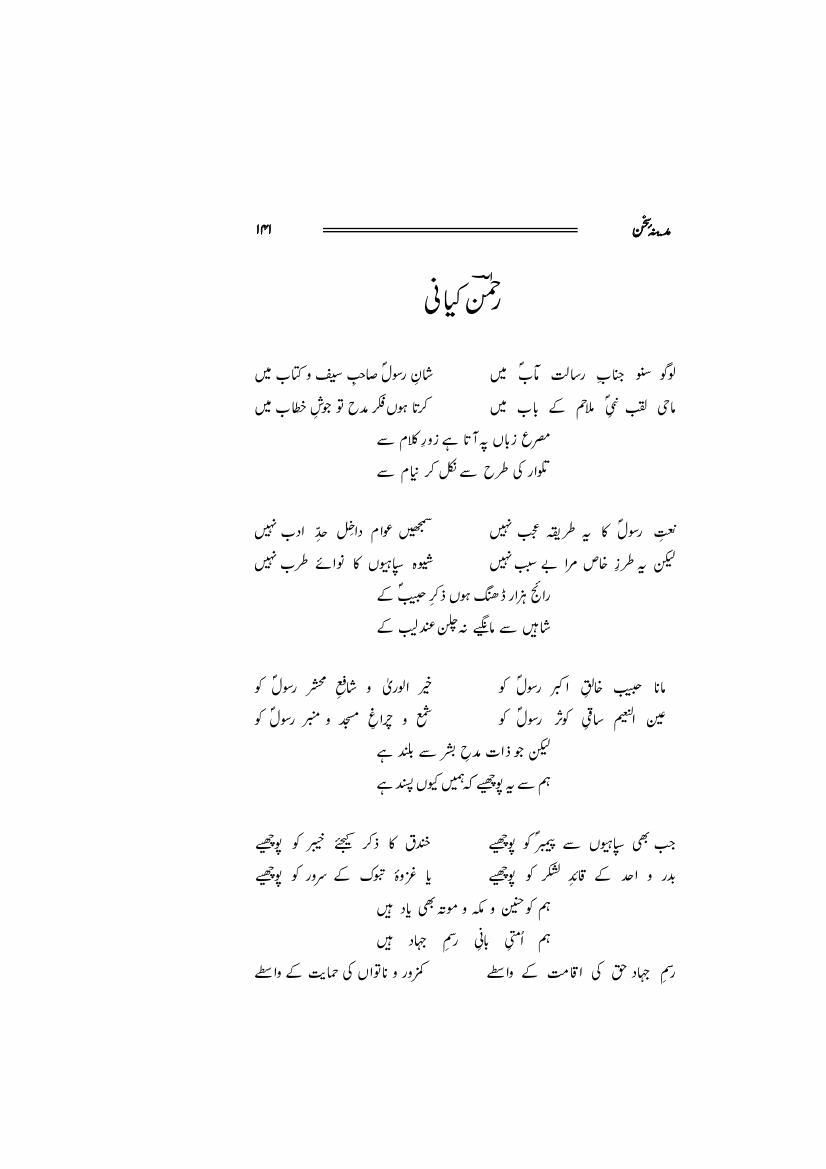 مدینۂ سخن ۱۴۱
رحمٰن کیانی
لوگو سنو جنابِ رسالت مآبؐ میں شانِ رسولؐ صاحبِ سیف و کتاب میں
ماحی لقب نبیِؐ ملاحم کے باب میں کرتا ہوں فکر مدح تو جوشِ خطاب میں
مصرع زباں پہ آتا ہے زورِ کلام سے
تلوار کی طرح سے نکل کر نیام سے
نعتِ رسولؐ کا یہ طریقہ عجب نہیں سمجھیں عوام داخلِ حدِّ ادب نہیں
لیکن یہ طرزِ خاص مرا بے سبب نہیں شیوہ سپاہیوں کا نوائے طرب نہیں
رائج ہزار ڈھنگ ہوں ذکرِ حبیبؐ کے
شاہیں سے مانگیے نہ چلن عندلیب کے
مانا حبیب خالقِ اکبر رسولؐ کو خیر الوریٰ و شافعِ محشر رسولؐ کو
عین النعیم ساقیِ کوثر رسولؐ کو شمع و چراغِ مسجد و منبر رسولؐ کو
لیکن جو ذات مدحِ بشر سے بلند ہے
ہم سے یہ پوچھیے کہ ہمیں کیوں پسند ہے
جب بھی سپاہیوں سے پیمبرؐ کو پوچھیے خندق کا ذکر کیجئے خیبر کو پوچھیے
بدر و احد کے قائدِ لشکر کو پوچھیے یا غزوۂ تبوک کے سرور کو پوچھیے
ہم کو حنین و مکہ و موتہ بھی یاد ہیں
ہم اُمتیِ بانیِ رسمِ جہاد ہیں
رسمِ جہاد حق کی اقامت کے واسطے کمزور و ناتواں کی حمایت کے واسطے